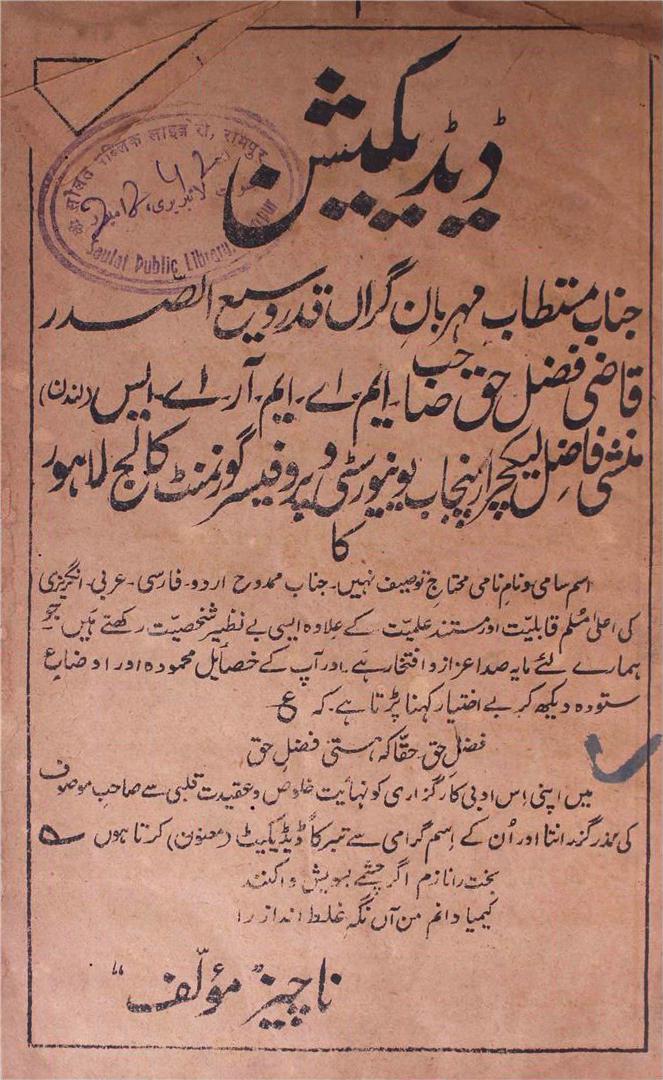 ڈیڈیکیشن
सौलत पब्लिक लाइब्रेरी, रामपुर
Saulat Public Library
جناب مستطاب مہربانِ گراں قدر وسیع الصدر
قاضی فضل حق صاحب ایم-اے-ایم-آر-اے-ایس (لندن)
منشی فاضل لیکچرار پنجاب یونیورسٹی و پروفیسر گورنمنٹ کالج لاہور
کا
اسم سامی و نام نامی محتاجِ توصیف نہیں۔ جناب ممدوح اردو۔ فارسی۔ عربی۔ انگریزی
کی اعلیٰ مُسلم قابلیّت اور مستند علمیّت کے علاوہ ایسی بے نظیر شخصیّت رکھتے ہیں جو
ہمارے لئے مایہ صد اعزاز و افتخار ہے۔ اور آپ کے خصائل محمودہ اور اوضاعِ
ستودہ دیکھ کر بے اختیار کہنا پڑتا ہے۔ کہ ع
فضلِ حق۔ حقّا کہ ہستی فضلِ حق
میں اپنی اِس ادبی کارگزاری کو نہایت خلوص و عقیدت قلبی سے صاحبِ موصوف
کی نذر گزرانتا اور اُن کے اِسم گرامی سے تبرکاً ڈیڈیکیٹ (معنون) کرتا ہوں ؎
بخت را نازم اگر چشمے بسویش وا کند
کیمیا دانم من آں نگہِ غلط انداز را
ناچیز "مؤلّف"